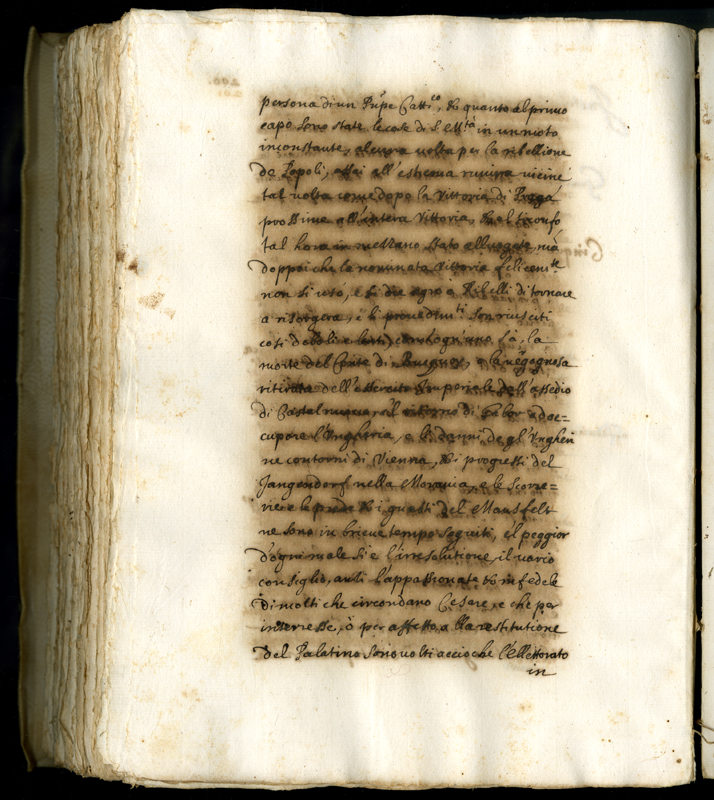 persona di un Pn̄pe Catt.co, & quanto al primo
capo sono state le cose di S. M.tà in un moto
inconstante, alcuna volta per la ribellione
de Popoli, assai all'estrema ruvina vicine
tal volta come dopo la Vittoria di Praga
prossime all'intera Vittoria, & al trionfo
tal hora in mezzano stato allungate, mà
doppoi che la nominata Vittoria felicem.te
non si usò, e si diè agio a Ribelli di tornare
a risorgere, e li provedim.ti son riusciti
così deboli e lenti, la
morte del Conte di Bucquoy, e la vergognosa
ritirata dell'essercito Imperiale dall'assedio
di Castel nuovo, il ritorno di Gabor ad oc=
cupare l'Ungharia, e li danni de gl'Ungheri
ne contorni di Vienna, & i progressi del
Jangendorf nella Moravia, e le scorre=
rie e le prede & i guasti del Mansfelt
ne sono in brieve tempo seguiti, e'l peggior
d'ogni male si è l'irresolutione, il vario
consiglio, anzi l'appassionato & infedele
di molti che circondano Cesare, e che per
interresse, ò per affetto alla restitutione
del Palatino sono volti acciò che l'Elettorato
in